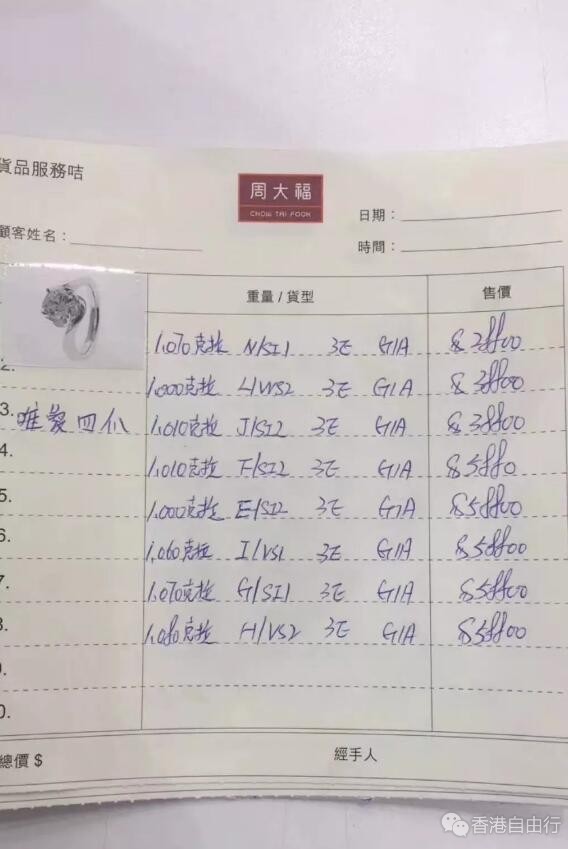 貨品服務咭
周大福
CHOW TAI FOOK
日期：
顧客姓名：
時間：
重量 / 貨型 售價
1.070克拉 N/SI1 3E GIA
2. 1.000克拉 L/VVS2 3E GIA
3. 唯愛四爪 1.010克拉 J/SI2 3E GIA
4. 1.010克拉 F/SI2 3E GIA
5. 1.000克拉 E/SI2 3E GIA
6. 1.060克拉 I/VS1 3E GIA
7. 1.070克拉 G/SI1 3E GIA
8. 1.080克拉 H/VS2 3E GIA
總價 $ 經手人
香港自由行